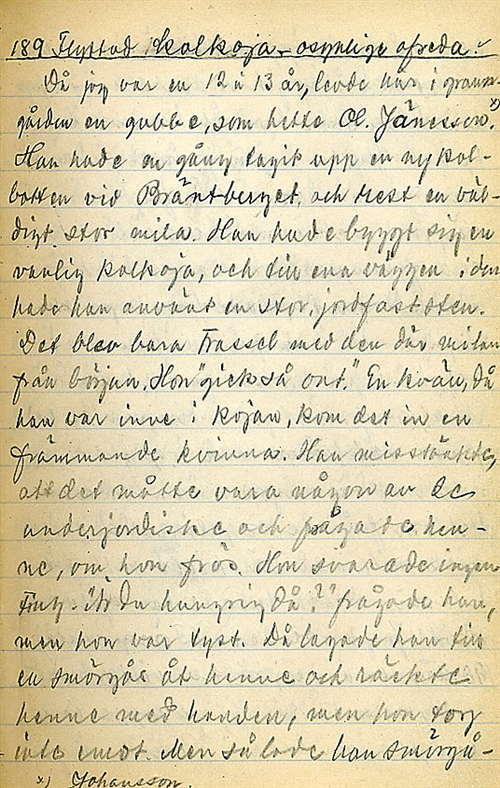 189 Flyttad kolkoja - osynliga ofreda.
Då jag var en 12 à 13 år, levde här i grann-
gården en gubbe, som hette Ol. Jänesson. x)
Han hade en gång tagit upp en ny kol-
botten vid Bräntberget och rest en väl-
digt stor mila. Han hade byggt sig en
vanlig kolkoja, och till ena väggen i den
hade han använt en stor, jordfast sten.
Det blev bara trassel med den där milan
från början. Hon "gick så ont." En kväll, då
han var inne i kojan, kom det in en
främmande kvinna. Han misstänkte,
att det måtte vara någon av de
underjordiske och frågade hen-
ne, om hon frös. Hon svarade ingen
ting. "Är Du hungrig då?" frågade han,
men hon var tyst. Då lagade han till
en smörgås åt henne och räckte
henne med handen, men hon tog
inte emot. Men så lade han smörgå-
x) Johansson.